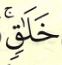 خَلَٰقٍۚ